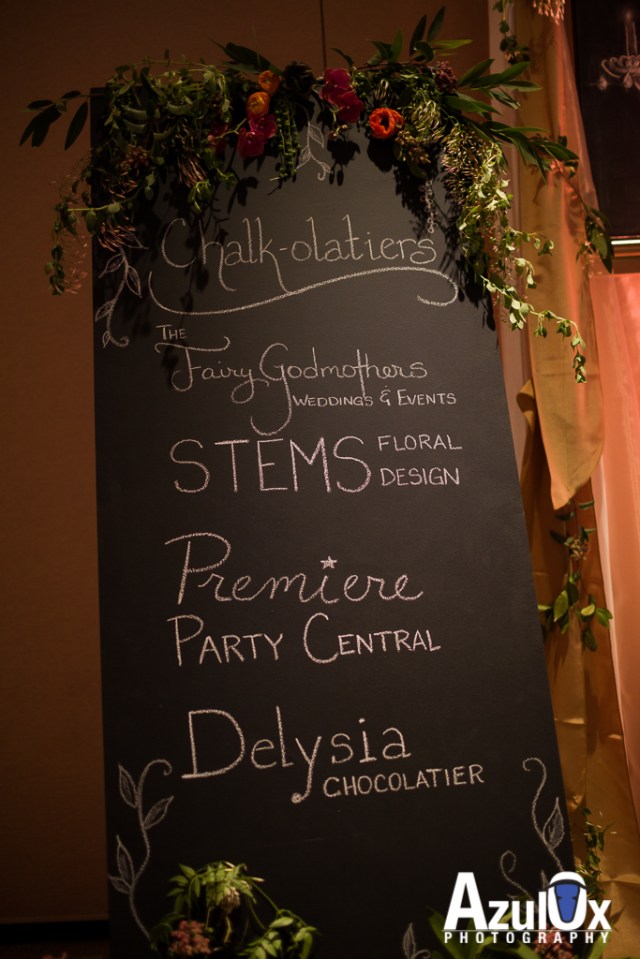 Chalk-olatiers
THE
Fairy Godmothers
WEDDINGS & EVENTS
STEMS FLORAL
DESIGN
Premiere
PARTY CENTRAL
Delysia
CHOCOLATIER
AZULOX
PHOTOGRAPHY